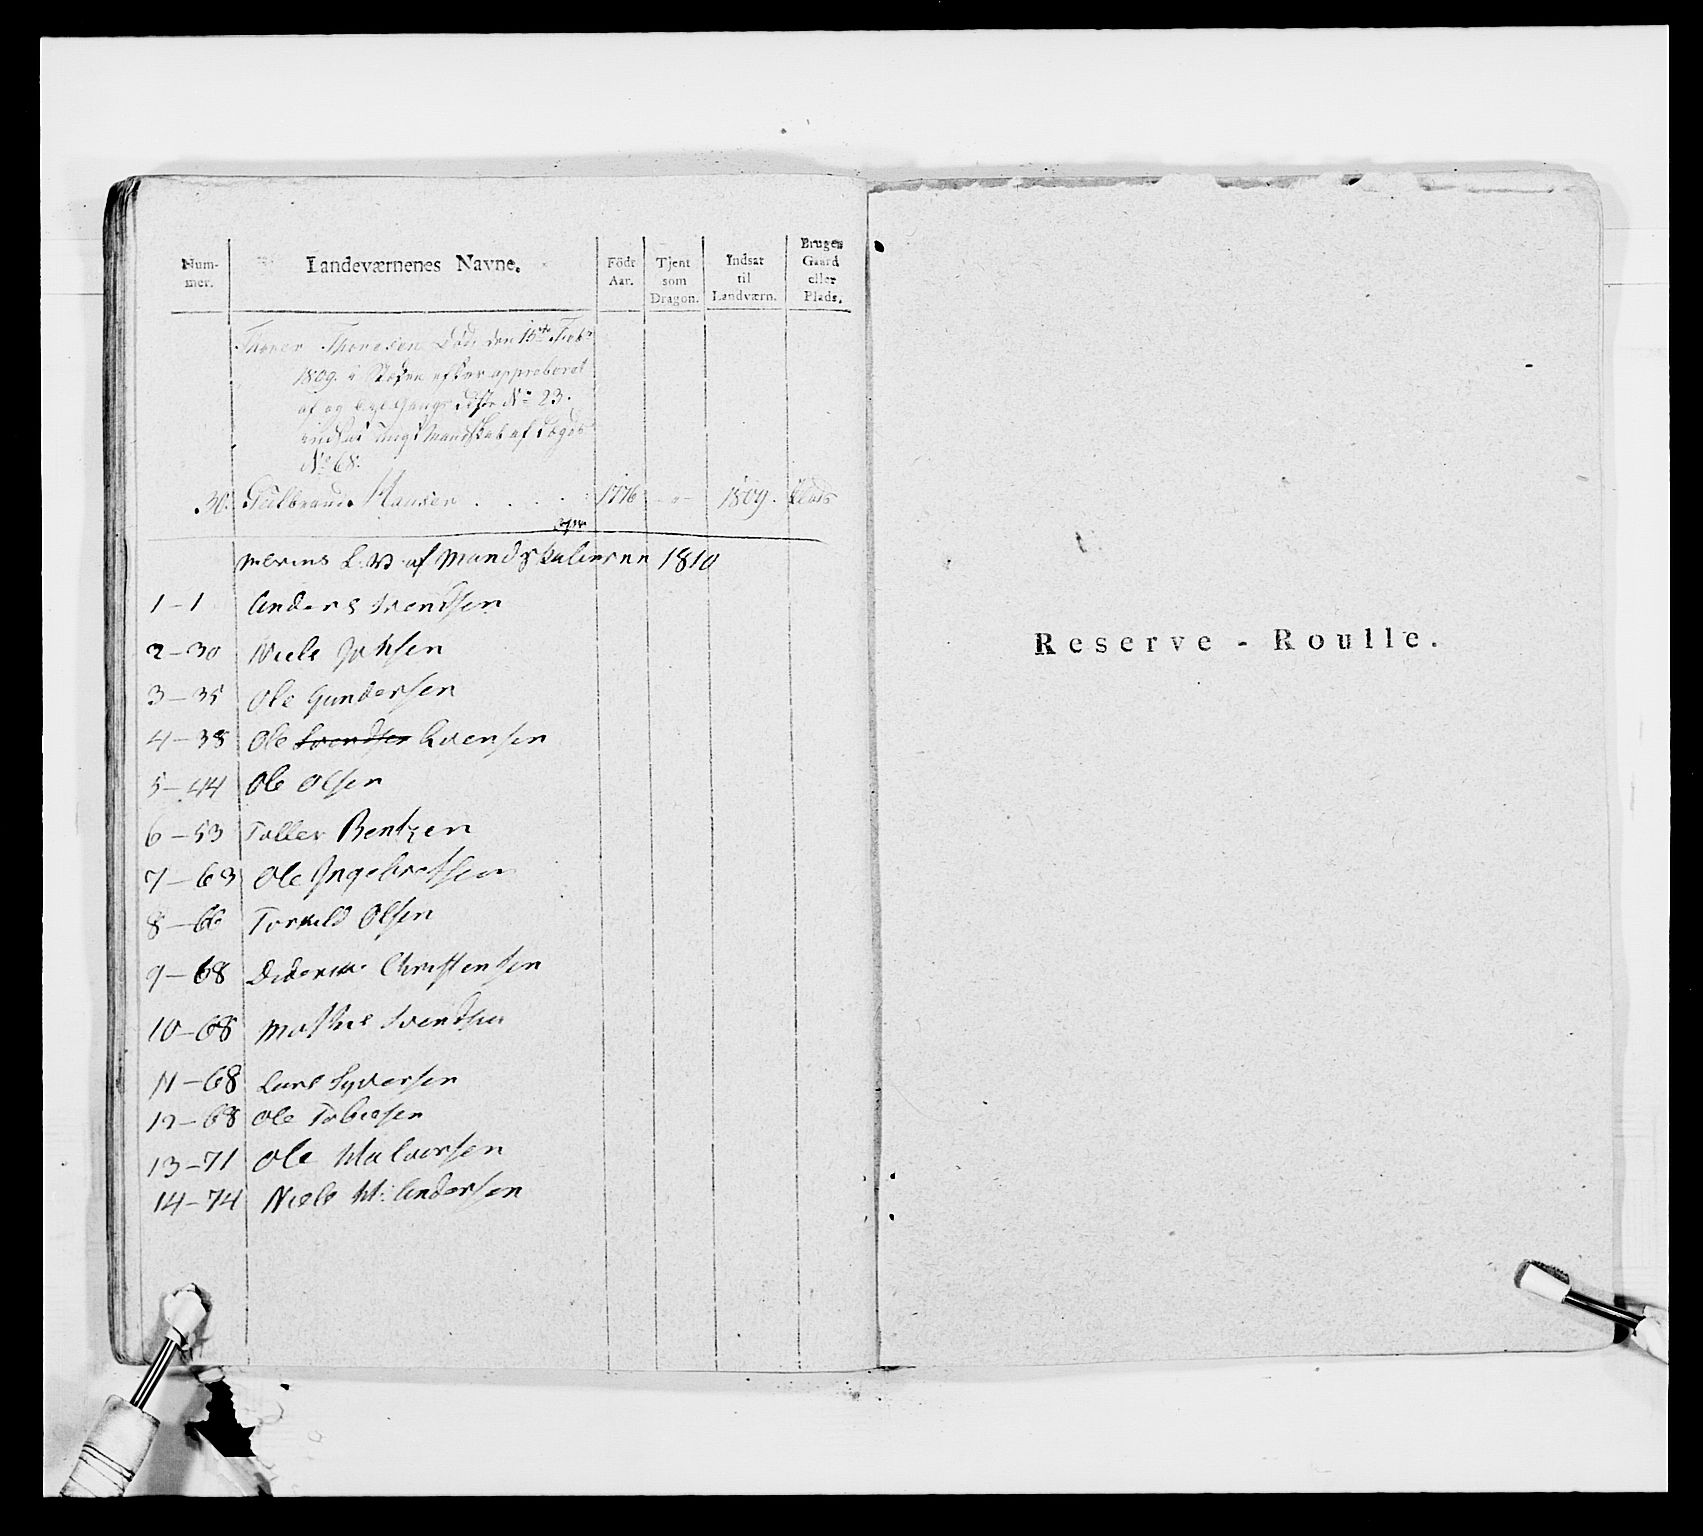 Num-
mer.
Landeværnenes Navne.
Födt
Aar.
Tjent
som
Dragon.
Indsat
til
Landværn.
Bruger
Gaard
eller
Plads.
Thorer Thoresen Död den 15de Febr
1809. i efter approberet
af og Gangs Liste No 23.
indsat ungt Mandskab af
No 68.
30. Gulbrand Hansen 1776 - " - 1809. Plads
L. W af Mandskaberne 1810
1-1 Anders Svendsen
2-30 Niels Johsen
3-35 Ole Gundersen
4-38 Ole Svendsen Evensen
5-44 Ole Olsen
6-53 Toller Bentzen
7-63 Ole Ingebretsen
8-66 Torkild Olsen
9-68 Christensen
10-68 Svendsen
11-68 Lars Syversen
12-68 Ole Tobiesen
13-71 Ole Halversen
14-74 Niels H: Andersen
Reserve - Roulle.